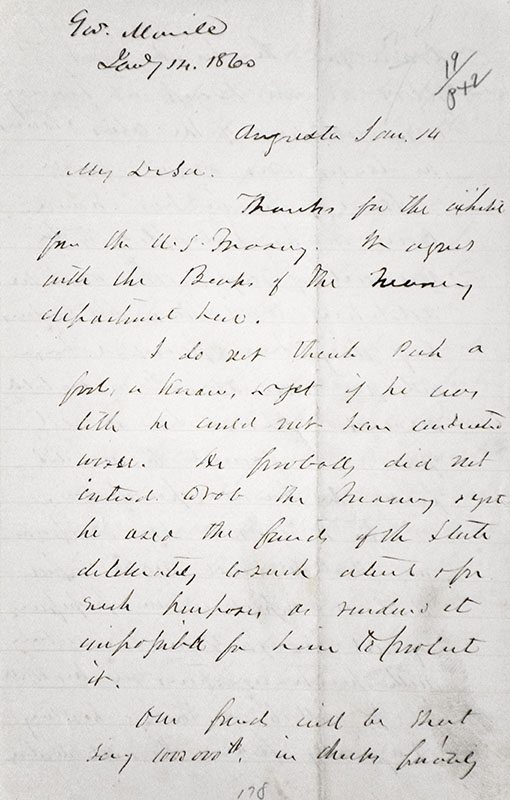 Gov. Morrill
Jany 14. 1860
19
Augusta Jan. 14
My Dr Sir.
Thanks for the exhibit
from the U.S. Treasury. It agrees
with the Books of the Treasury
department here.
I do not think Peck a
fool, a knave, & yet if he was
both he could not have conducted
worse. He probably did not
intend to rob the Treasury & yet
he used the funds of the State
deliberately to such extent & for
such purposes as renders it
impossible for him to protect
it.
Our fund will be short
say 100000th. in checks
178